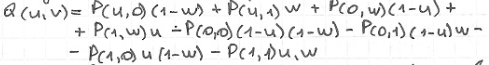 Q(u,v) = P(u,0)(1-w) + P(u,1)w + P(0,w)(1-u) +
+ P(1,w)u - P(0,0)(1-u)(1-w) - P(0,1)(1-u)w -
- P(1,0)u(1-w) - P(1,1)u,w